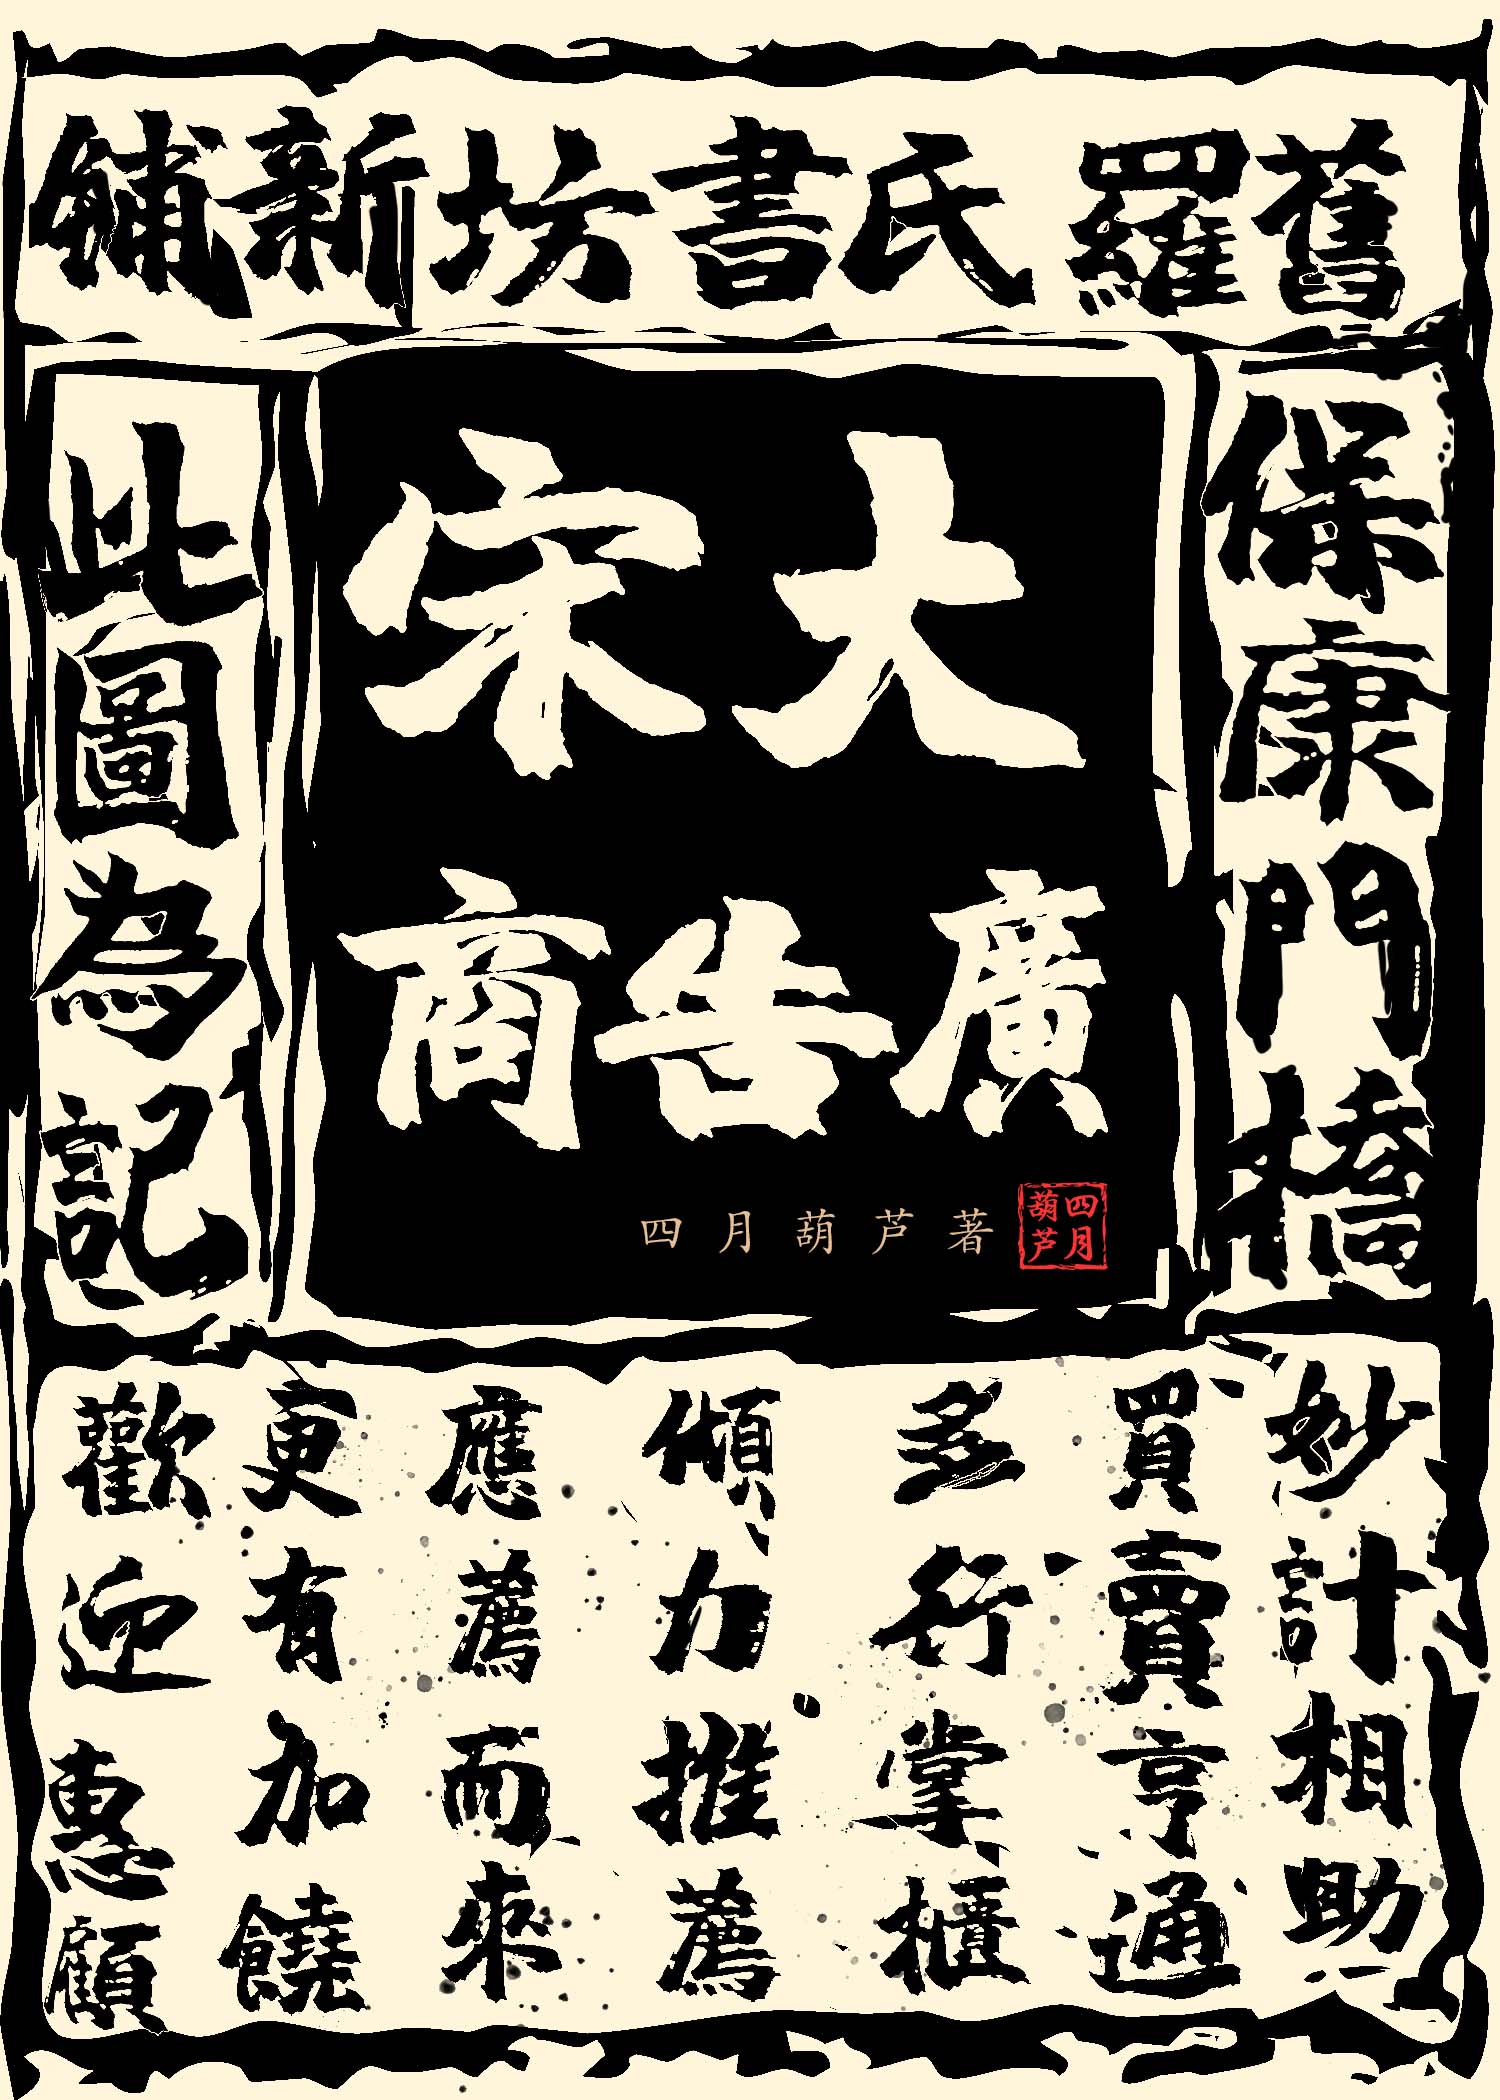 舊羅氏書坊新鋪
保康門橋
大宋
廣告商
四月葫芦著
四月
葫芦
此圖為記
妙計相助
買賣亨通
多行掌櫃
傾力推薦
應薦而來
更有加饒
歡迎惠顧